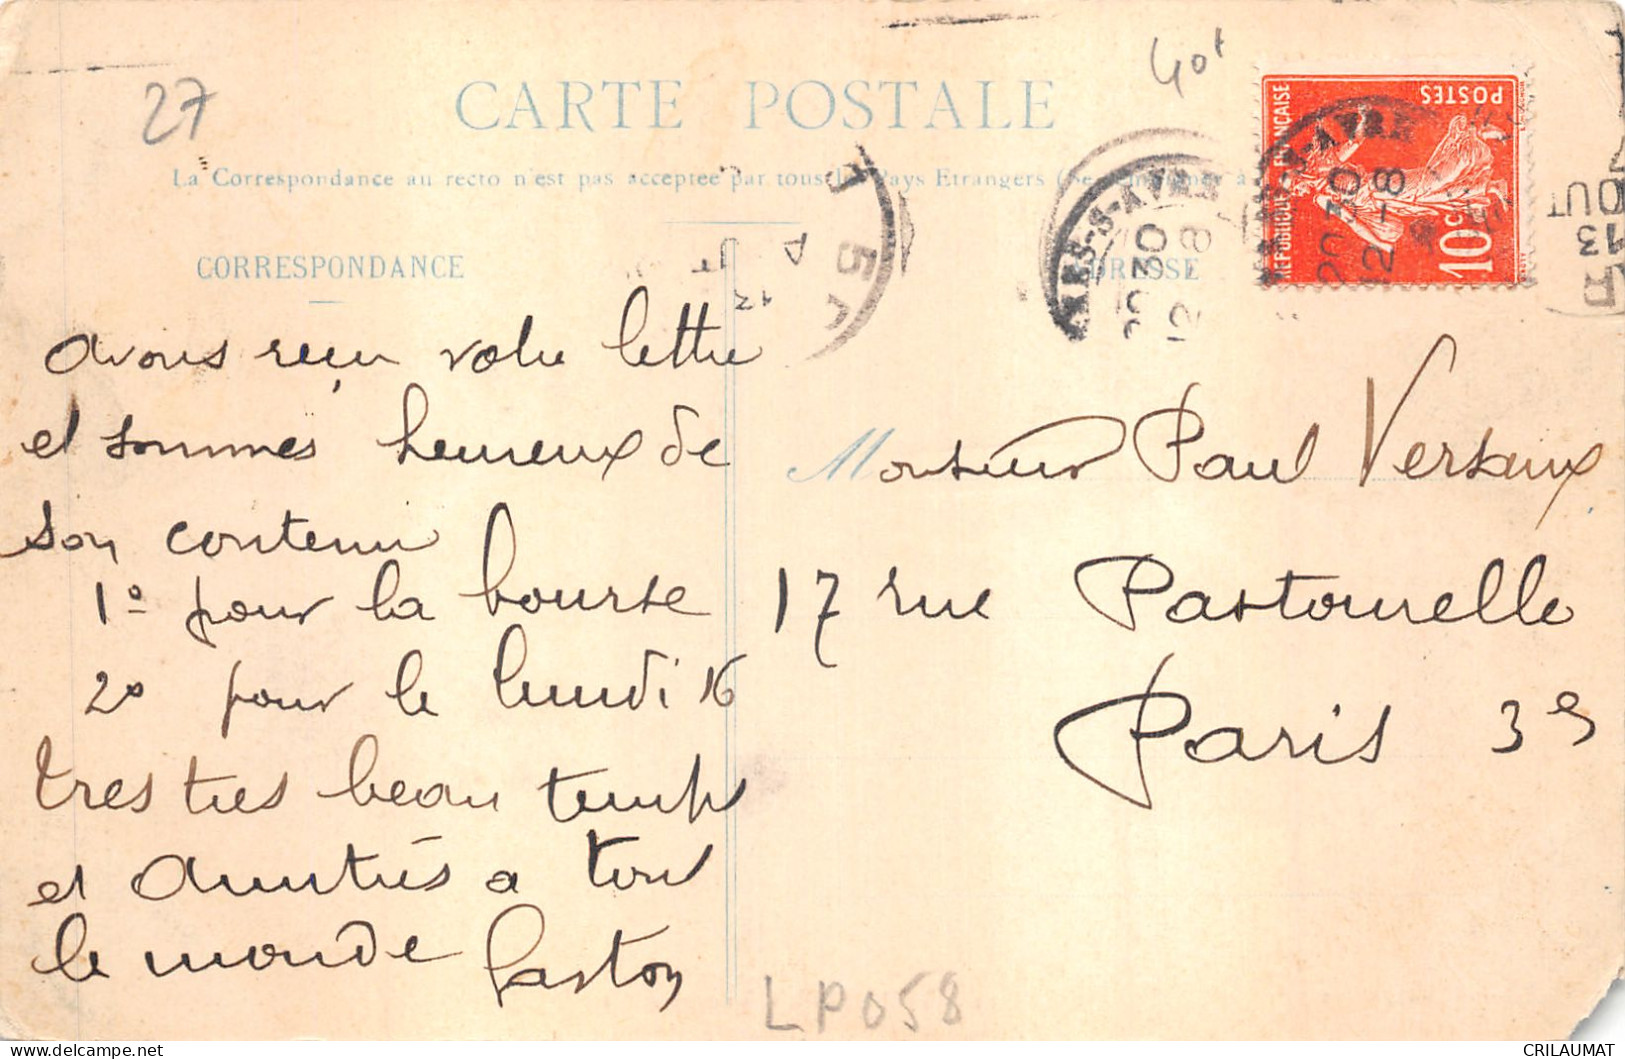 27
40f
CARTE POSTALE
La Correspondance au recto n'est pas acceptée par tous les Pays Etrangers (Se renseigner à
CORRESPONDANCE
ADRESSE
RÉPUBLIQUE FRANÇAISE
POSTES
10c
S-AVRE
20 30
12-8
S-S-AVRE
20 30
12 8
OUT
13
avons reçu votre lettre
et sommes heureux de
son contenu
1º pour la bourse
2º pour le lundi 16
tres tres beau temps
et Amitiés a tout
le monde Gaston
Monsieur Paul Versaux
17 rue Pastourelle
Paris 3e
LP058
CRILAUMAT